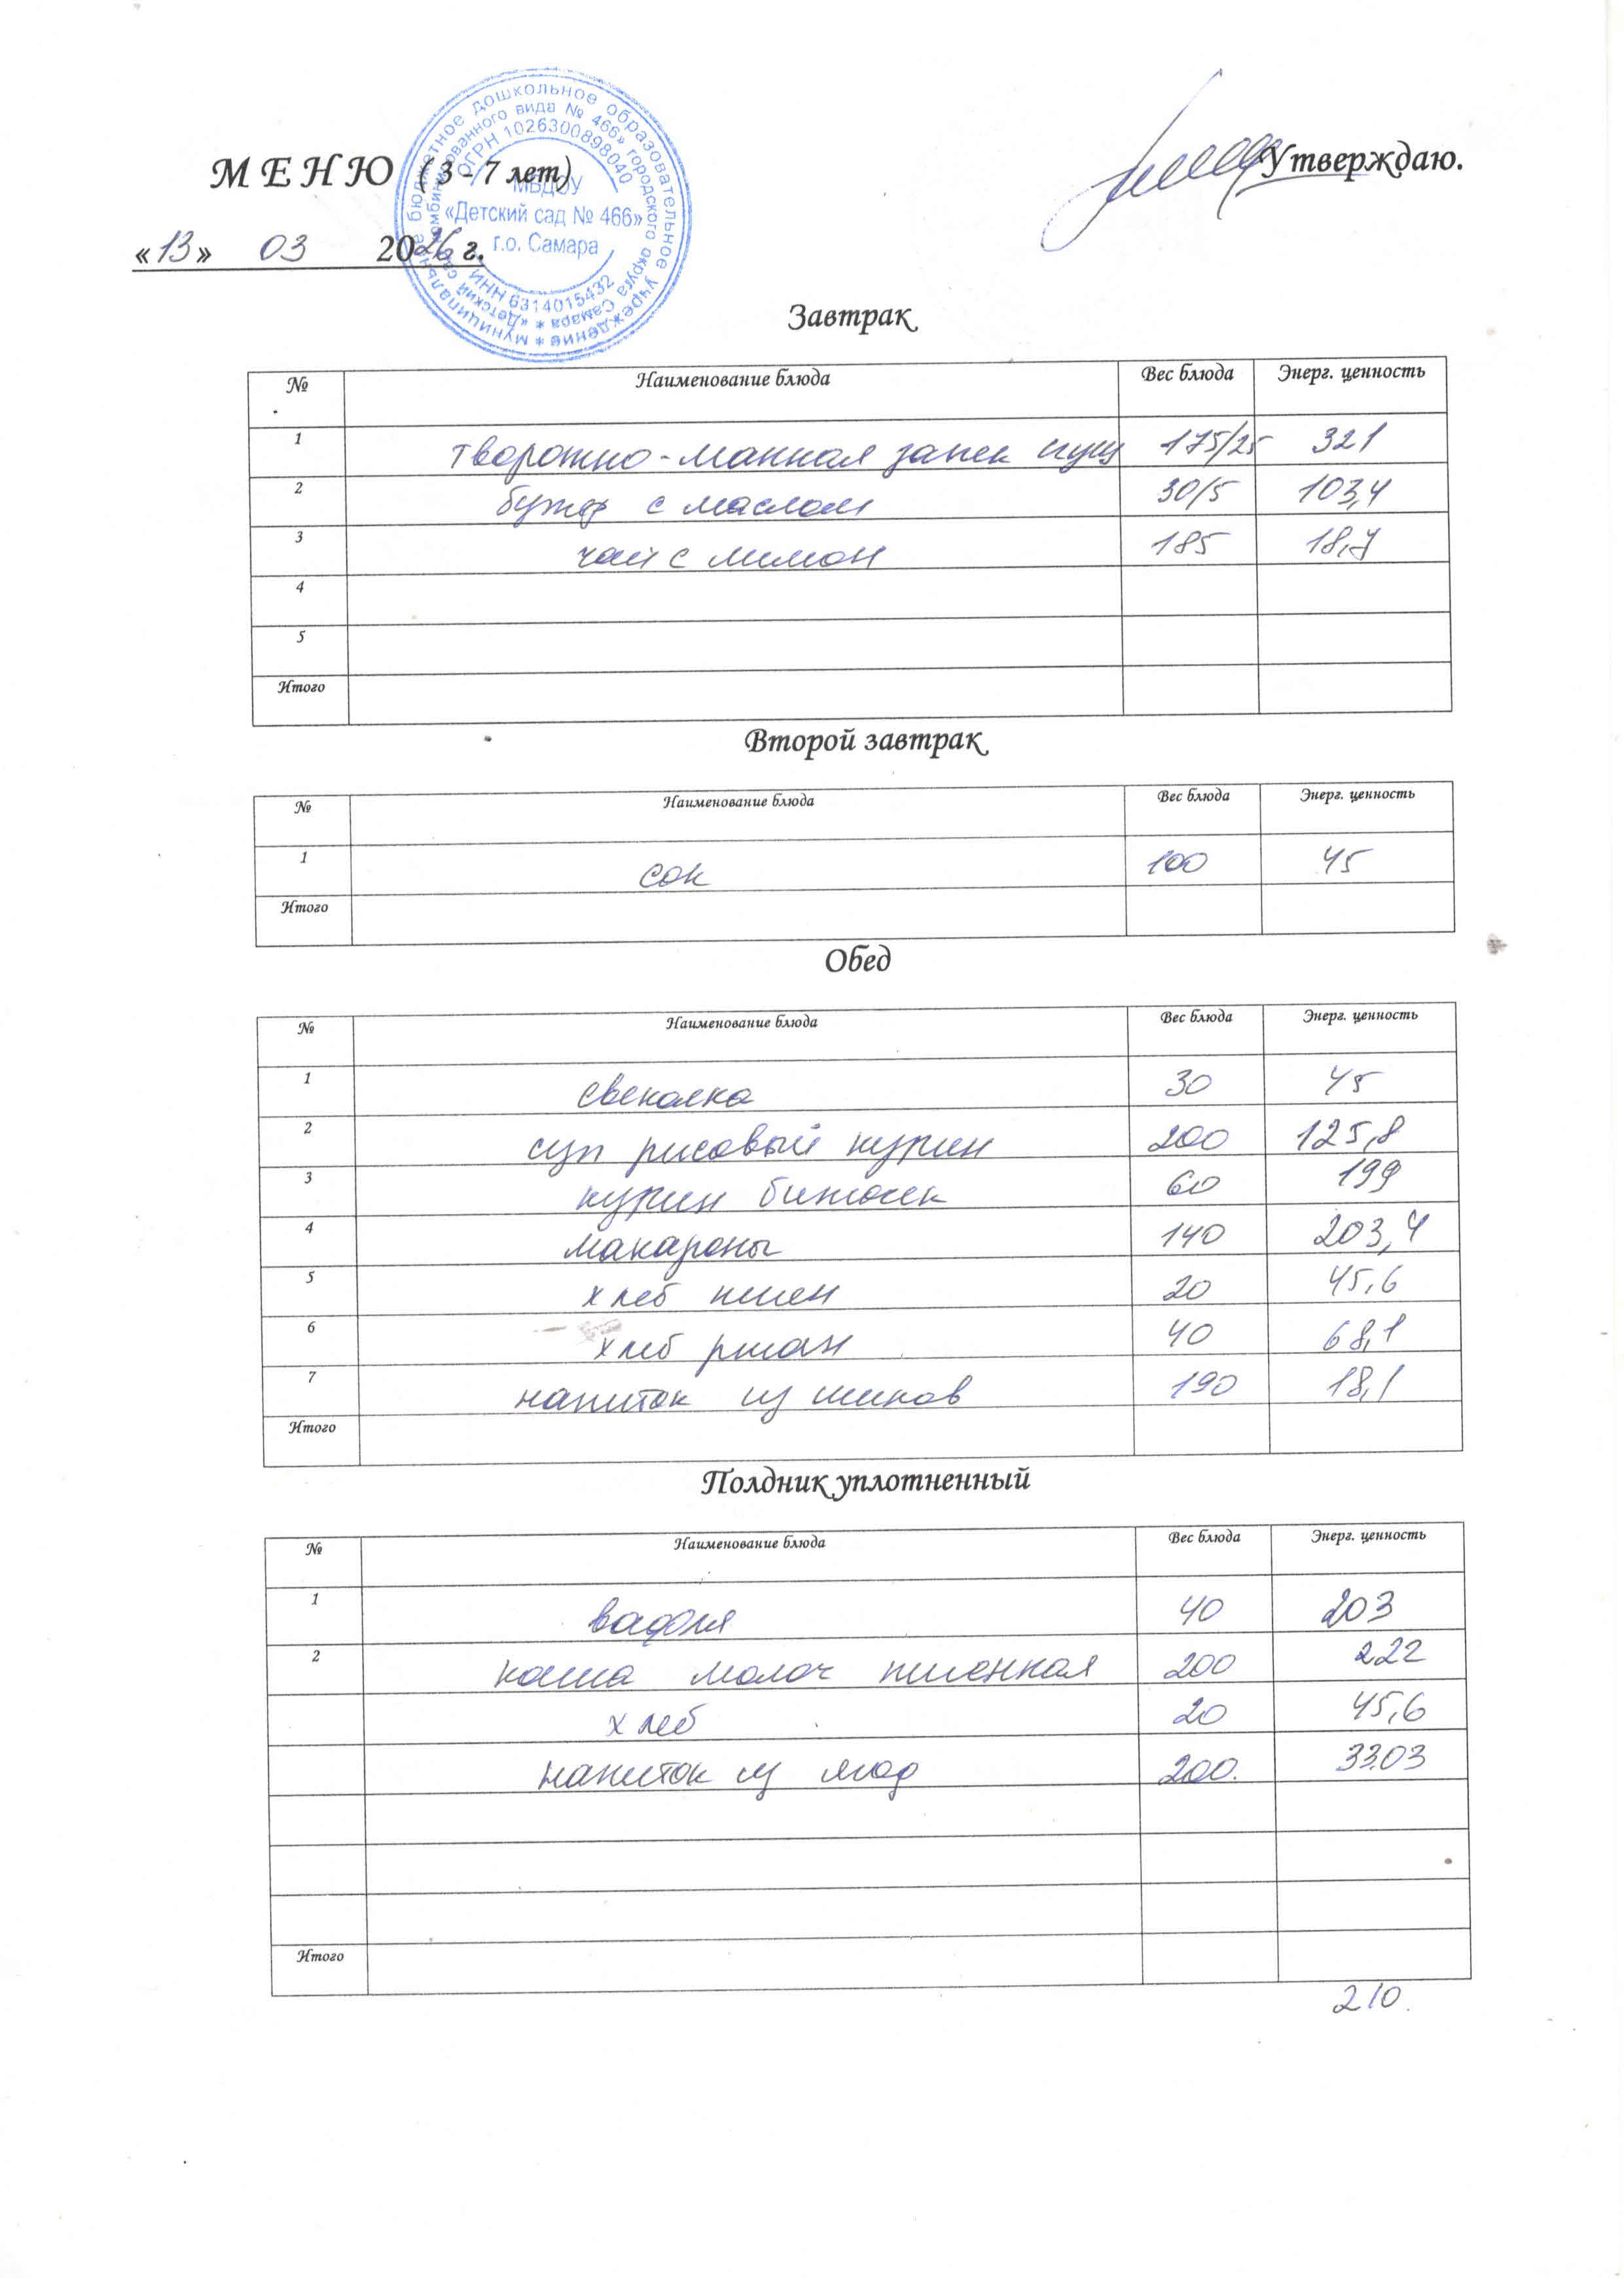 МЕНЮ (3 - 7 лет)
Утверждаю.
«13» 03 2026 г.
муниципальное бюджетное дошкольное образовательное учреждение *
«Детский сад комбинированного вида № 466» городского округа Самара *
ОГРН 1026300898040
МБДОУ
«Детский сад № 466»
г.о. Самара
ИНН 6314015432
Завтрак
№ Наименование блюда Вес блюда Энерг. ценность
1 творожно-манная запек сгущ 175/25 321
2 бутер с маслом 30/5 103,4
3 чай с лимон 185 18,7
4
5
Итого
Второй завтрак
№ Наименование блюда Вес блюда Энерг. ценность
1 сок 100 45
Итого
Обед
№ Наименование блюда Вес блюда Энерг. ценность
1 свеколка 30 45
2 суп рисовый курин 200 125,8
3 курин биточек 60 199
4 макароны 140 203,4
5 хлеб пшен 20 45,6
6 хлеб ржан 40 68,1
7 напиток из шипов 190 18,1
Итого
Полдник уплотненный
№ Наименование блюда Вес блюда Энерг. ценность
1 вафля 40 203
2 каша молоч пшенная 200 222
хлеб 20 45,6
напиток из ягод 200. 33.03
Итого
210.